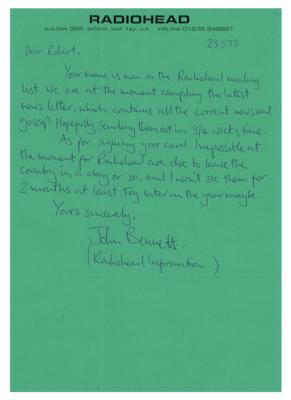 RADIOHEAD
p.o.box 322, oxford, ox4 1ey, u.k. info.line 01235 848261
23 5 95
Dear Robert,
Your name is now on the Radiohead mailing
list. We are at the moment compiling the latest
news letter, which contains all the current news and
gossip. Hopefully sending them out in 3/4 weeks time.
As for signing your card. Impossible at
the moment for Radiohead are due to leave the
country in a day or so, and I won't see them for
2 months at least. Try later in the year maybe.
Yours sincerely,
John Bennett.
(Radiohead Information.)